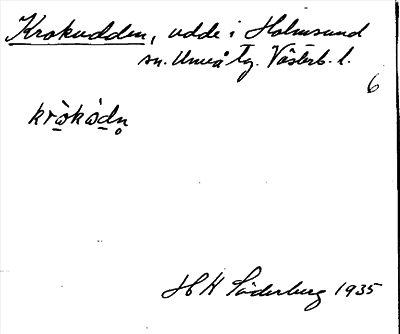 Krokudden, udde i Holmsund
sn. Umeå tg. Västerb. l.
6
krо̀kȯ̀dn̥
H H Söderberg 1935